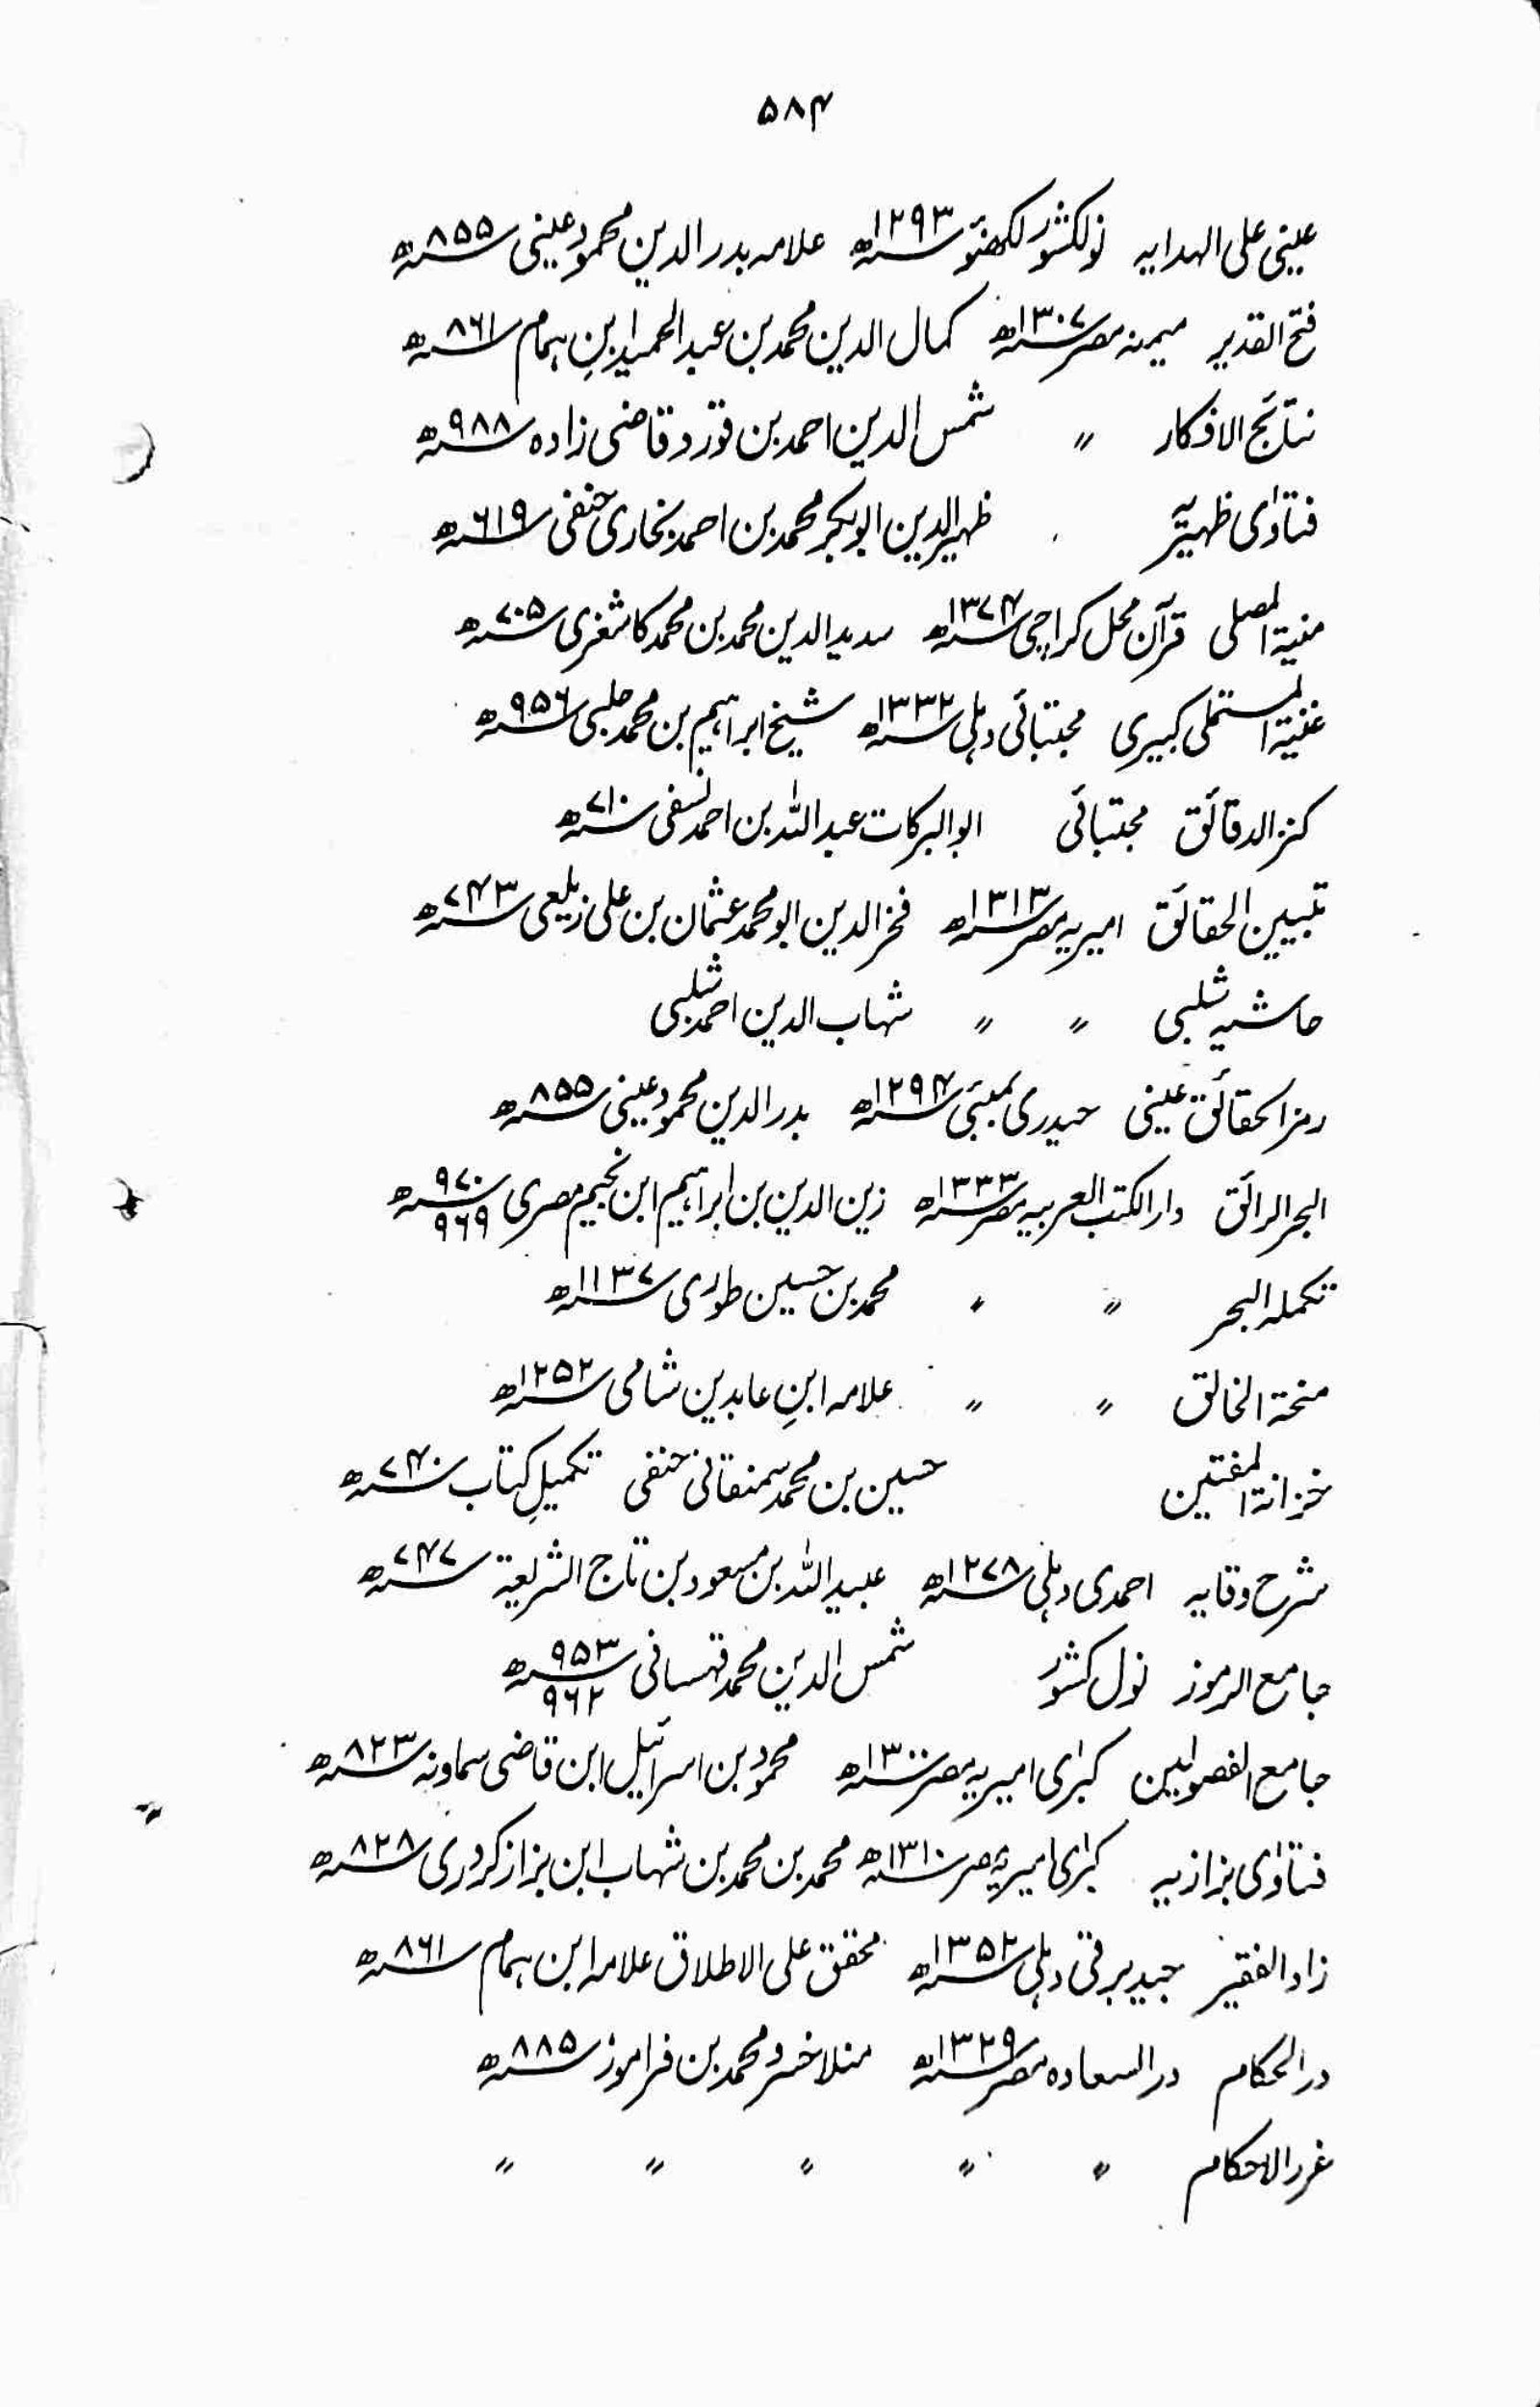 ۵۸۴
عینی علی الہدایہ نولکشور لکھنؤ ۱۲۹۳ھ علامہ بدرالدین محمود عینی ۸۵۵ھ
فتح القدیر میمنہ مصر ۱۳۰۷ھ کمال الدین محمد بن عبدالحمید ابنِ ہمام ۸۶۱ھ
نتائج الافکار 〃 شمس الدین احمد بن قورد قاضی زادہ ۹۸۸ھ
فتاوٰی ظہیریہ ظہیرالدین ابوبکر محمد بن احمد بخاری حنفی ۶۱۹ھ
منیۃ المصلی قرآن محل کراچی ۱۳۷۴ھ سدیدالدین محمد بن محمد کاشغری ۷۰۵ھ
غنیۃ المستملی کبیری مجتبائی دہلی ۱۳۳۲ھ شیخ ابراہیم بن محمد حلبی ۹۵۶ھ
کنزالدقائق مجتبائی ابوالبرکات عبداللہ بن احمد نسفی ۷۱۰ھ
تبیین الحقائق امیریہ مصر ۱۳۱۳ھ فخرالدین ابو محمد عثمان بن علی زیلعی ۷۴۳ھ
حاشیہ شلبی 〃 〃 شہاب الدین احمد شلبی
رمزالحقائق عینی حیدری بمبئی ۱۲۹۴ھ بدرالدین محمود عینی ۸۵۵ھ
البحرالرائق دارالکتب العربیہ مصر ۱۳۳۳ھ زین الدین بن ابراہیم ابن نجیم مصری ۹۷۰ھ ۹۶۹
تکملہ البحر 〃 〃 محمد بن حسین طوری ۱۱۳۷ھ
منحۃ الخالق 〃 〃 علامہ ابنِ عابدین شامی ۱۲۵۲ھ
خزانۃ المفتین حسین بن محمد سمنقانی حنفی تکمیلِ کتاب ۷۴۰ھ
شرح وقایہ احمدی دہلی ۱۲۷۸ھ عبیداللہ بن مسعود بن تاج الشریعۃ ۷۴۷ھ
جامع الرموز نول کشور شمس الدین محمد قہسانی ۹۵۳ھ ۹۶۲
جامع الفصولین کبرٰی امیریہ مصر ۱۳۰۰ھ محمود بن اسرائیل ابن قاضی سماونہ ۸۲۳ھ
فتاوٰی بزازیہ کبرٰی امیریہ مصر ۱۳۱۰ھ محمد بن محمد بن شہاب ابن بزاز کردری ۸۲۸ھ
زادالفقیر جید برقی دہلی ۱۳۵۲ھ محقق علی الاطلاق علامہ ابن ہمام ۸۶۱ھ
دررالحکام درالسعادہ مصر ۱۳۲۹ھ منلا خسرو محمد بن فراموز ۸۸۵ھ
غررالاحکام 〃 〃 〃 〃 〃